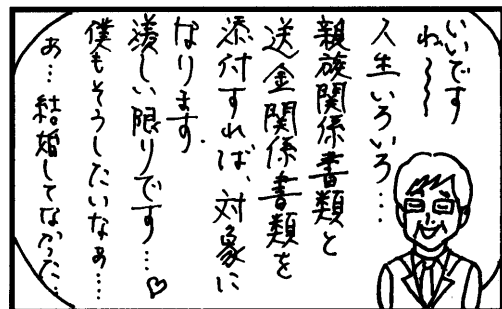 いいです
ね〜〜
人生いろいろ…
親族関係書類と
送金関係書類を
添付すれば、対象に
なります。
羨しい限りです…♡
僕もそうしたいなぁ…
あ…結婚してなかった…